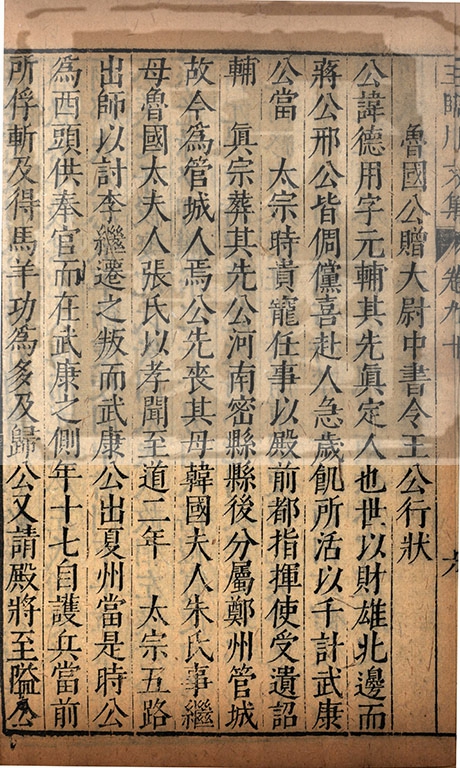 王臨川文集 卷九十 六
魯國公贈大尉中書令王公行狀
公諱德用字元輔其先眞定人也世以財雄北邊而
蔣公邢公皆倜儻喜赴人急歲飢所活以千計武康
公當 太宗時貴寵任事以殿前都指揮使受遺詔
輔 眞宗葬其先公河南密縣縣後分屬鄭州管城
故今為管城人焉公先喪其母韓國夫人朱氏事繼
母魯國太夫人張氏以孝聞至道二年 太宗五路
出師以討李繼遷之叛而武康公出夏州當是時公
為西頭供奉官而在武康之側年十七自護兵當前
所俘斬及得馬羊功為多及歸公又請殿將至隘公